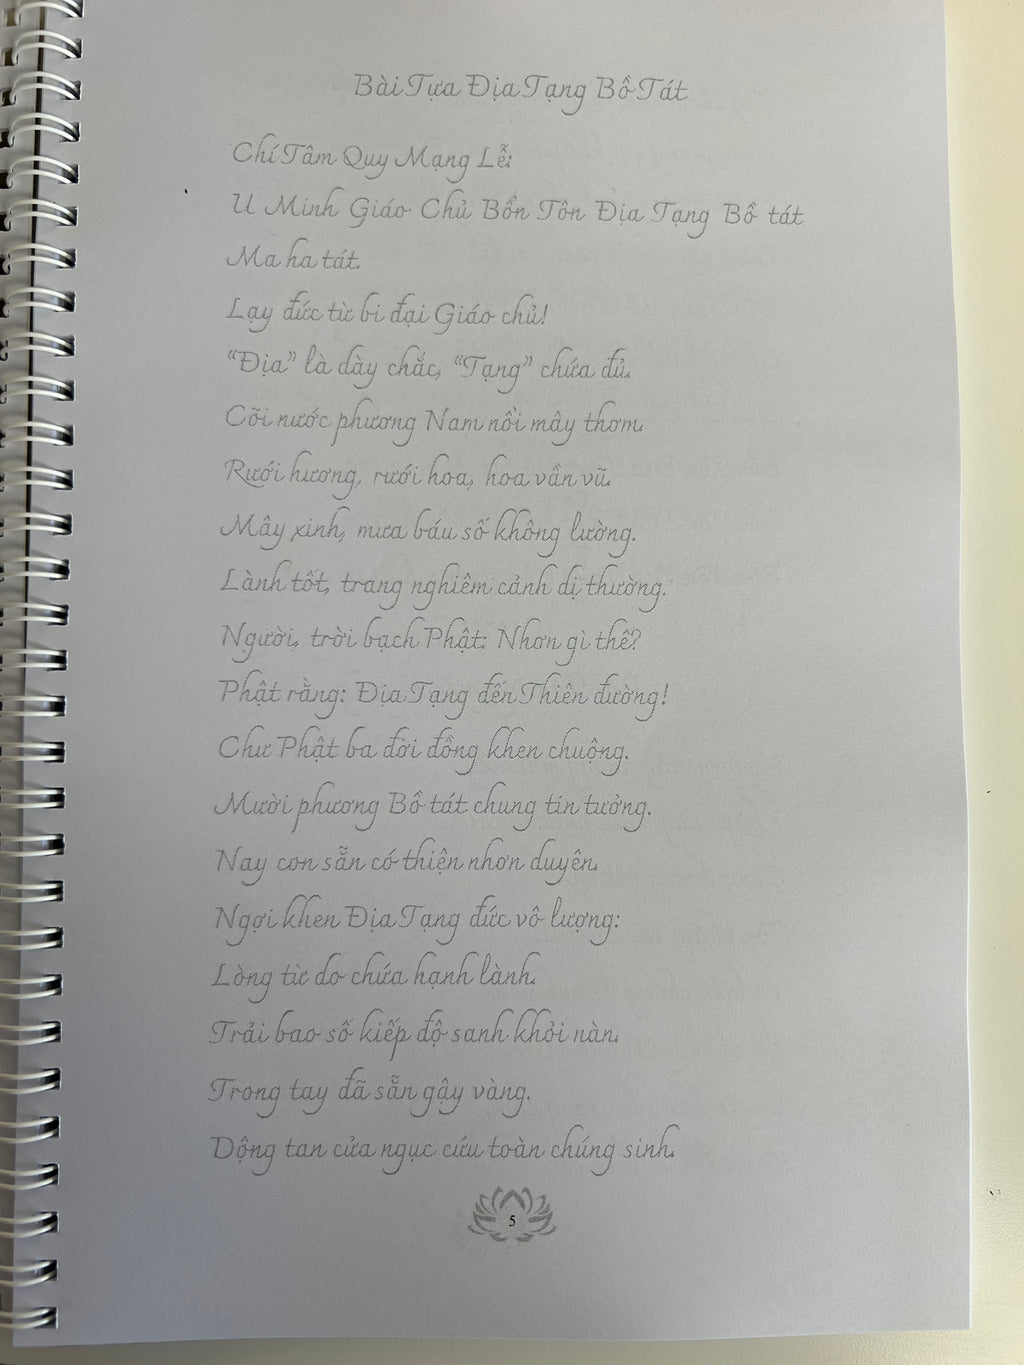 Bài Tựa Địa Tạng Bồ Tát
Chí Tâm Quy Mạng Lễ:
U Minh Giáo Chủ Bổn Tôn Địa Tạng Bồ tát
Ma ha tát.
Lạy đức từ bi đại Giáo chủ!
“Địa” là dày chắc, “Tạng” chứa đủ.
Cõi nước phương Nam nổi mây thơm.
Rưới hương, rưới hoa, hoa vần vũ.
Mây xinh, mưa báu số không lường.
Lành tốt, trang nghiêm cảnh dị thường.
Người, trời bạch Phật: Nhơn gì thế?
Phật rằng: Địa Tạng đến Thiên đường!
Chư Phật ba đời đồng khen chuộng.
Mười phương Bồ tát chung tin tưởng.
Nay con sẵn có thiện nhơn duyên.
Ngợi khen Địa Tạng đức vô lượng:
Lòng từ do chứa hạnh lành.
Trải bao số kiếp độ sanh khỏi nàn.
Trong tay đã sẵn gậy vàng.
Dộng tan cửa ngục cứu toàn chúng sinh.
5